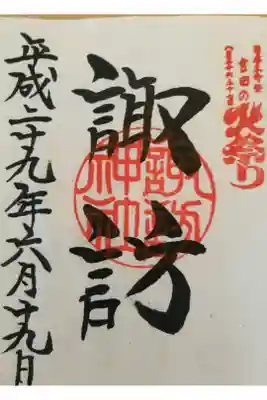 日本三奇祭
吉田の
火祭り
諏訪
諏訪
神社
平成二十九年六月十九日